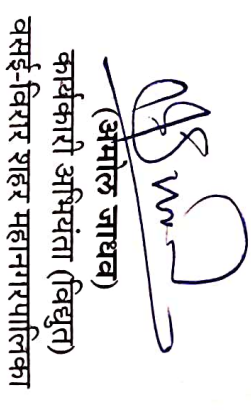 (अमोल जाधव)
कार्यकारी अभियंता (विद्युत)
वसई-विरार शहर महानगरपालिका